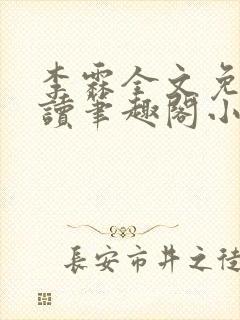 李霖全文免
讀筆趣閣小
長安市井之徒